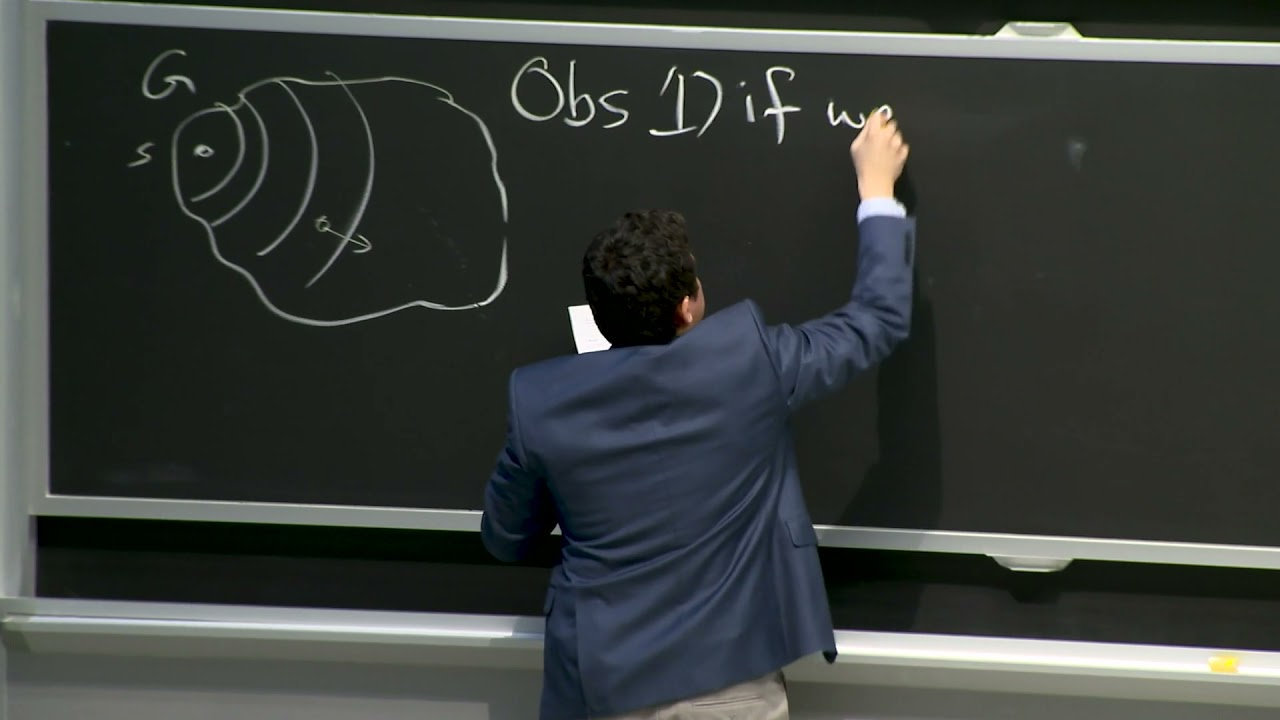 G
S
Obs 1) if we